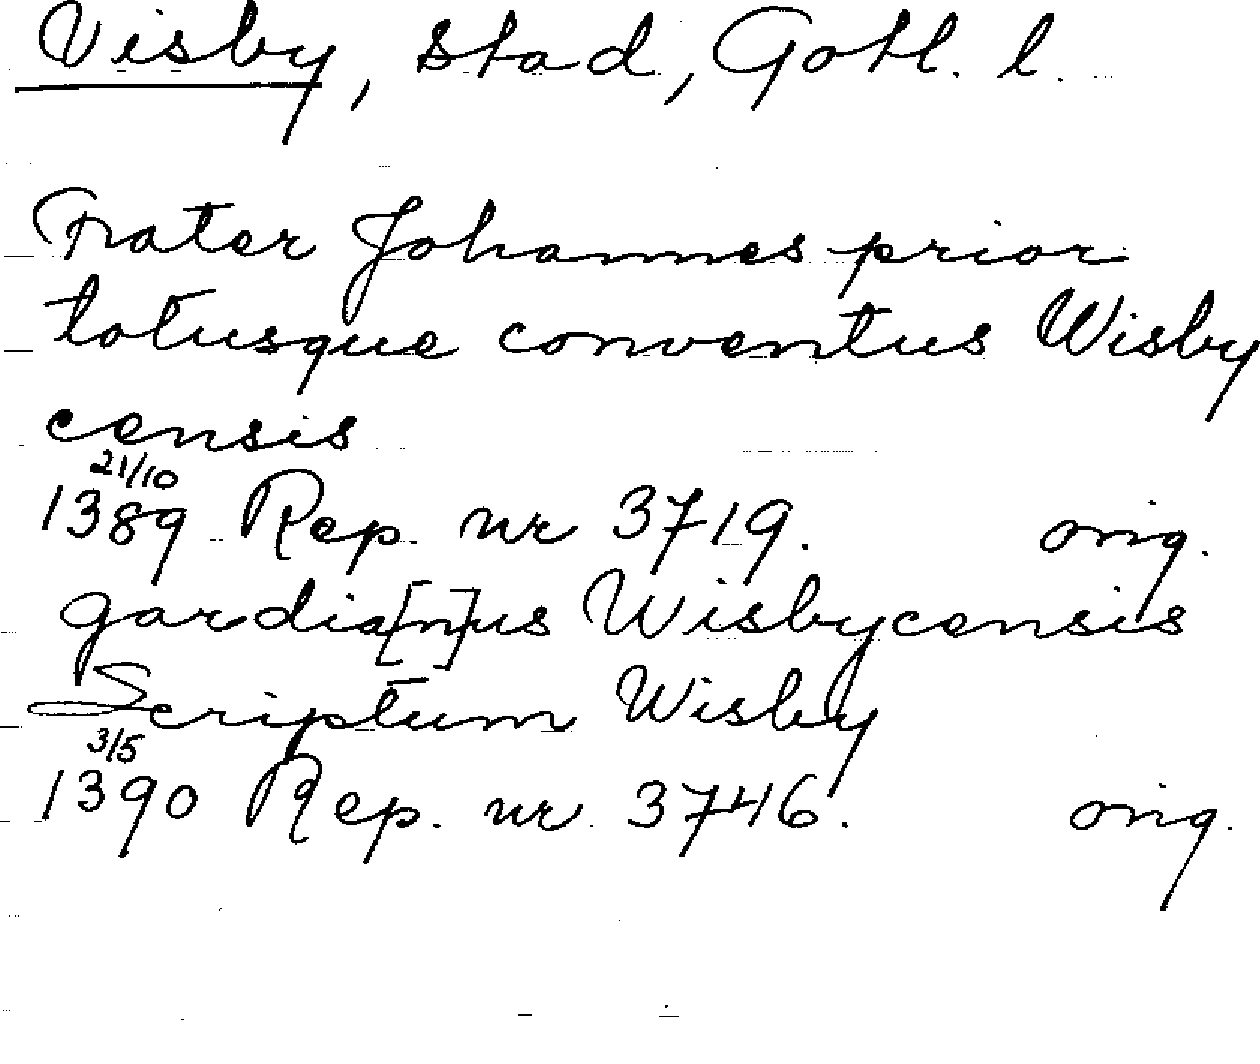 Visby, stad, Gotl. l.
Frater Johannes prior
totusque conventus Wisby
censis
21/10
1389 Rep. nr 3719. orig.
gardia[n]us Wisbycensis
Scriptum Wisby
3/5
1390 Rep. nr. 3746. orig.